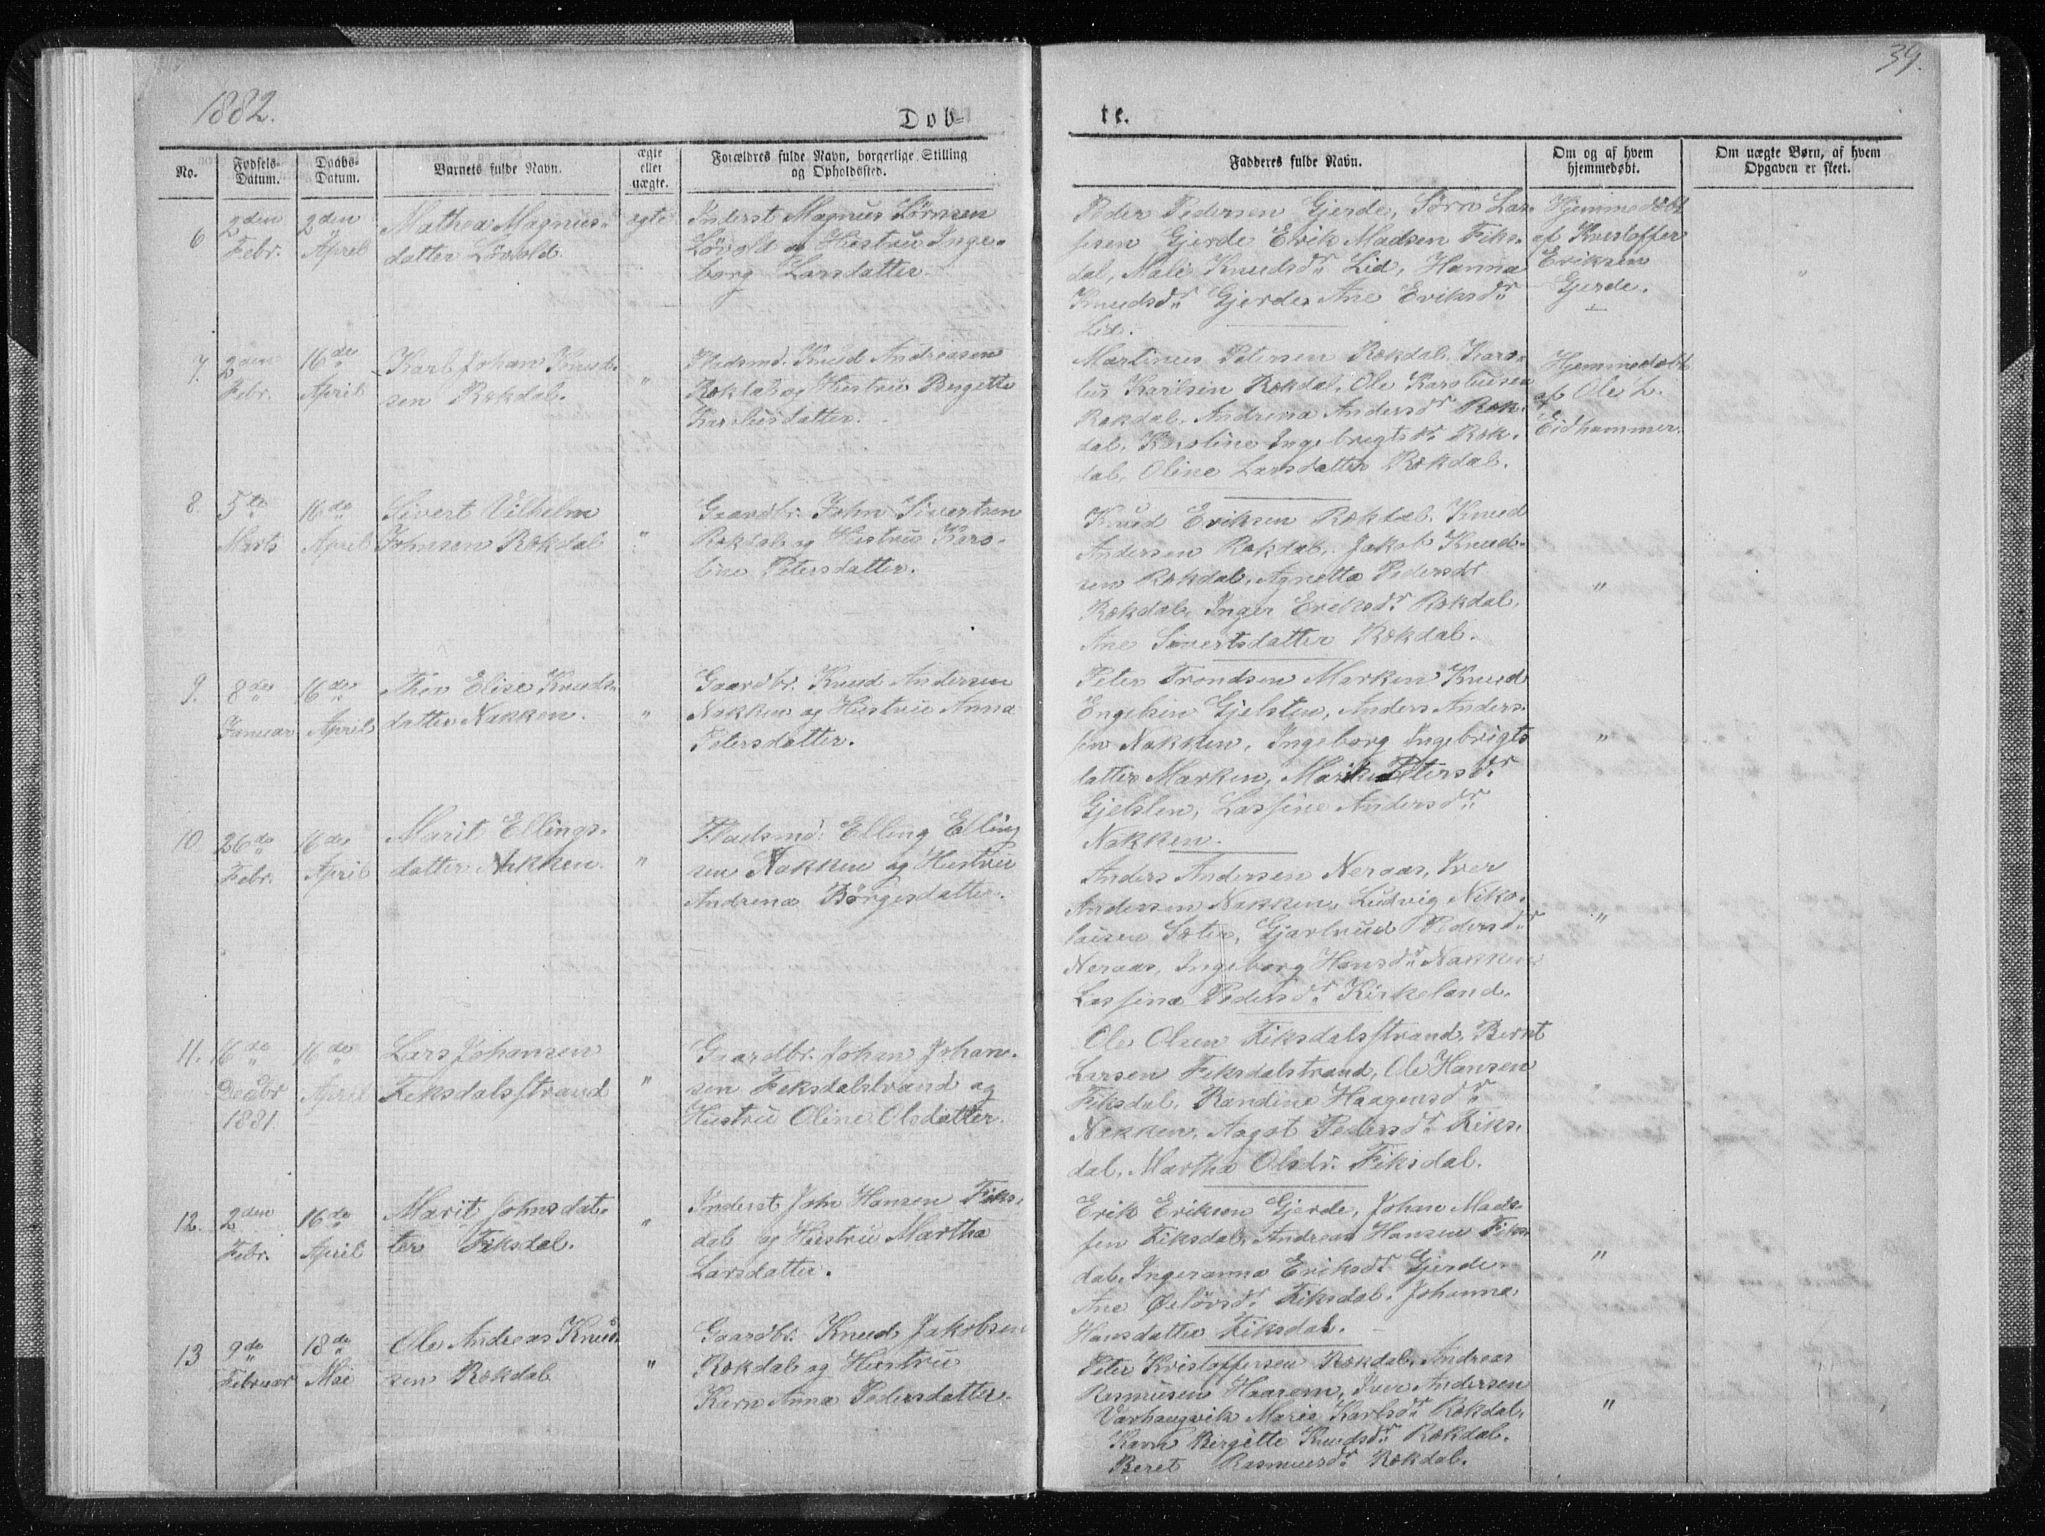 1882.
39.
Døb-
te.
No.
Fødsels-
Datum.
Daabs-
Datum.
Barnets fulde Navn.
ægte
eller
uægte.
Forældres fulde Navn, borgerlige Stilling
og Opholdssted.
Fadderes fulde Navn.
Om og af hvem
hjemmedøbt.
Om uægte Børn, af hvem
Opgaven er skeet.
6
2den
Febr.
2den
April
Mathea Magnus-
datter Lövold.
ægte
Inderst Magnus Sörensen
Lövold og Hustru Inge-
borg Larsdatter.
Peder Pedersen Gjerde, Sörn Lar-
sen Gjerde Erik Madsen Fiks-
dal, Mali Knudsdr Lid, Hanna
Knudsdr Gjerde, Ane Eriksdr
Lid.
Hjemmedöbt
af Kristoffer
Eriksen
Gjerde.
"
7.
2den
Febr.
16de
April
Karl Johan Knud-
sen Rekdal.
"
Pladsmd. Knud Andreasen
Rekdal og Hustru Birgitte
Karolusdatter.
Martinus Petersen Rekdal, Karo-
lus Karlsen Rekdal, Ole Karolusen
Rekdal, Andrina Andersdr Rek-
dal, Karoline Ingebrigtsdr Rek-
dal, Oline Larsdatter Rekdal.
Hjemmedöbt
af Ole L.
Eidhammer.
8.
5te
Marts
16de
April
Sivert Vilhelm
Johnsen Rekdal
"
Gaardbr. John Sivertsen
Rekdal og Hustru Karo-
line Petersdatter.
Knud Eriksen Rekdal, Knud
Andersen Rekdal, Jakob Knud-
sen Rekdal, Agnetta Pedersdr
Rekdal, Inger Eriksdr Rekdal,
Ane Sivertsdatter Rekdal.
"
9.
8de
Januar
16de
April
Thea Elise Knuds-
datter Nakken.
"
Gaardbr. Knud Andersen
Nakken og Hustru Anna
Petersdatter.
Peter Trondsen Marken Knud
Engelsen Gjelsten, Anders Anders-
sen Nakken, Ingeborg Ingebrigts
datter Marken, Marit Petersdr
Gjelsten, Lassine Andersdr
Nakken.
"
10
26de
Febr.
16de
April
Marit Ellings-
datter Nakken.
"
Pladsmd: Elling Elling
sen Nakken og Hustru
Andrina Börgesdatter.
Anders Andersen Neraas, Iver
Andersen Nakken, Ludvig Niko-
laisen Sæter, Gjartrud Pedersdr
Neraas, Ingeborg Hansdr Nakken
Lassina Pedersdr Kirkeland.
"
11.
16de
Decbr
1881.
16de
April
Lars Johansen
Fiksdalsstrand
"
Gaardbr. Johan Johan-
sen Fiksdalstrand og
Hustru Oline Olsdatter.
Ole Olsen Fiksdalsstrand, Bernt
Larsen Fiksdalstrand, Ole Hansen
Fiksdal, Randine Haagensdr
Nakken, Aagot Pedersdr Fiks-
dal, Martha Olsdr. Fiksdal.
"
12.
2den
Febr.
16de
April
Marit Johnsdat-
ter Fiksdal.
"
Inderst John Hansen Fiks-
dal og Hustru Martha
Larsdatter.
Erik Eriksen Gjerde, Johan Mads-
sen Fiksdal, Andreas Hansen Fiks-
dal, Ingeranna Eriksdr Gjerde
Ane Östövsdr Fiksdal, Johanna
Hansdatter Fiksdal.
"
13
9de
Februar
18de
Mai
Ole Andreas Knud-
sen Rekdal
"
Gaardbr. Knud Jakobsen
Rekdal og Hustru
Karn Anna Pedersdatter.
Peter Kristoffersen Rekdal, Andreas
Rasmusen Haarem, Iver Andersen
Varhaugvik Marie Karlsdr Rekdal,
Karn Birgitte Knudsdr Rekdal.
Beret Rasmusdr Rekdal.
"